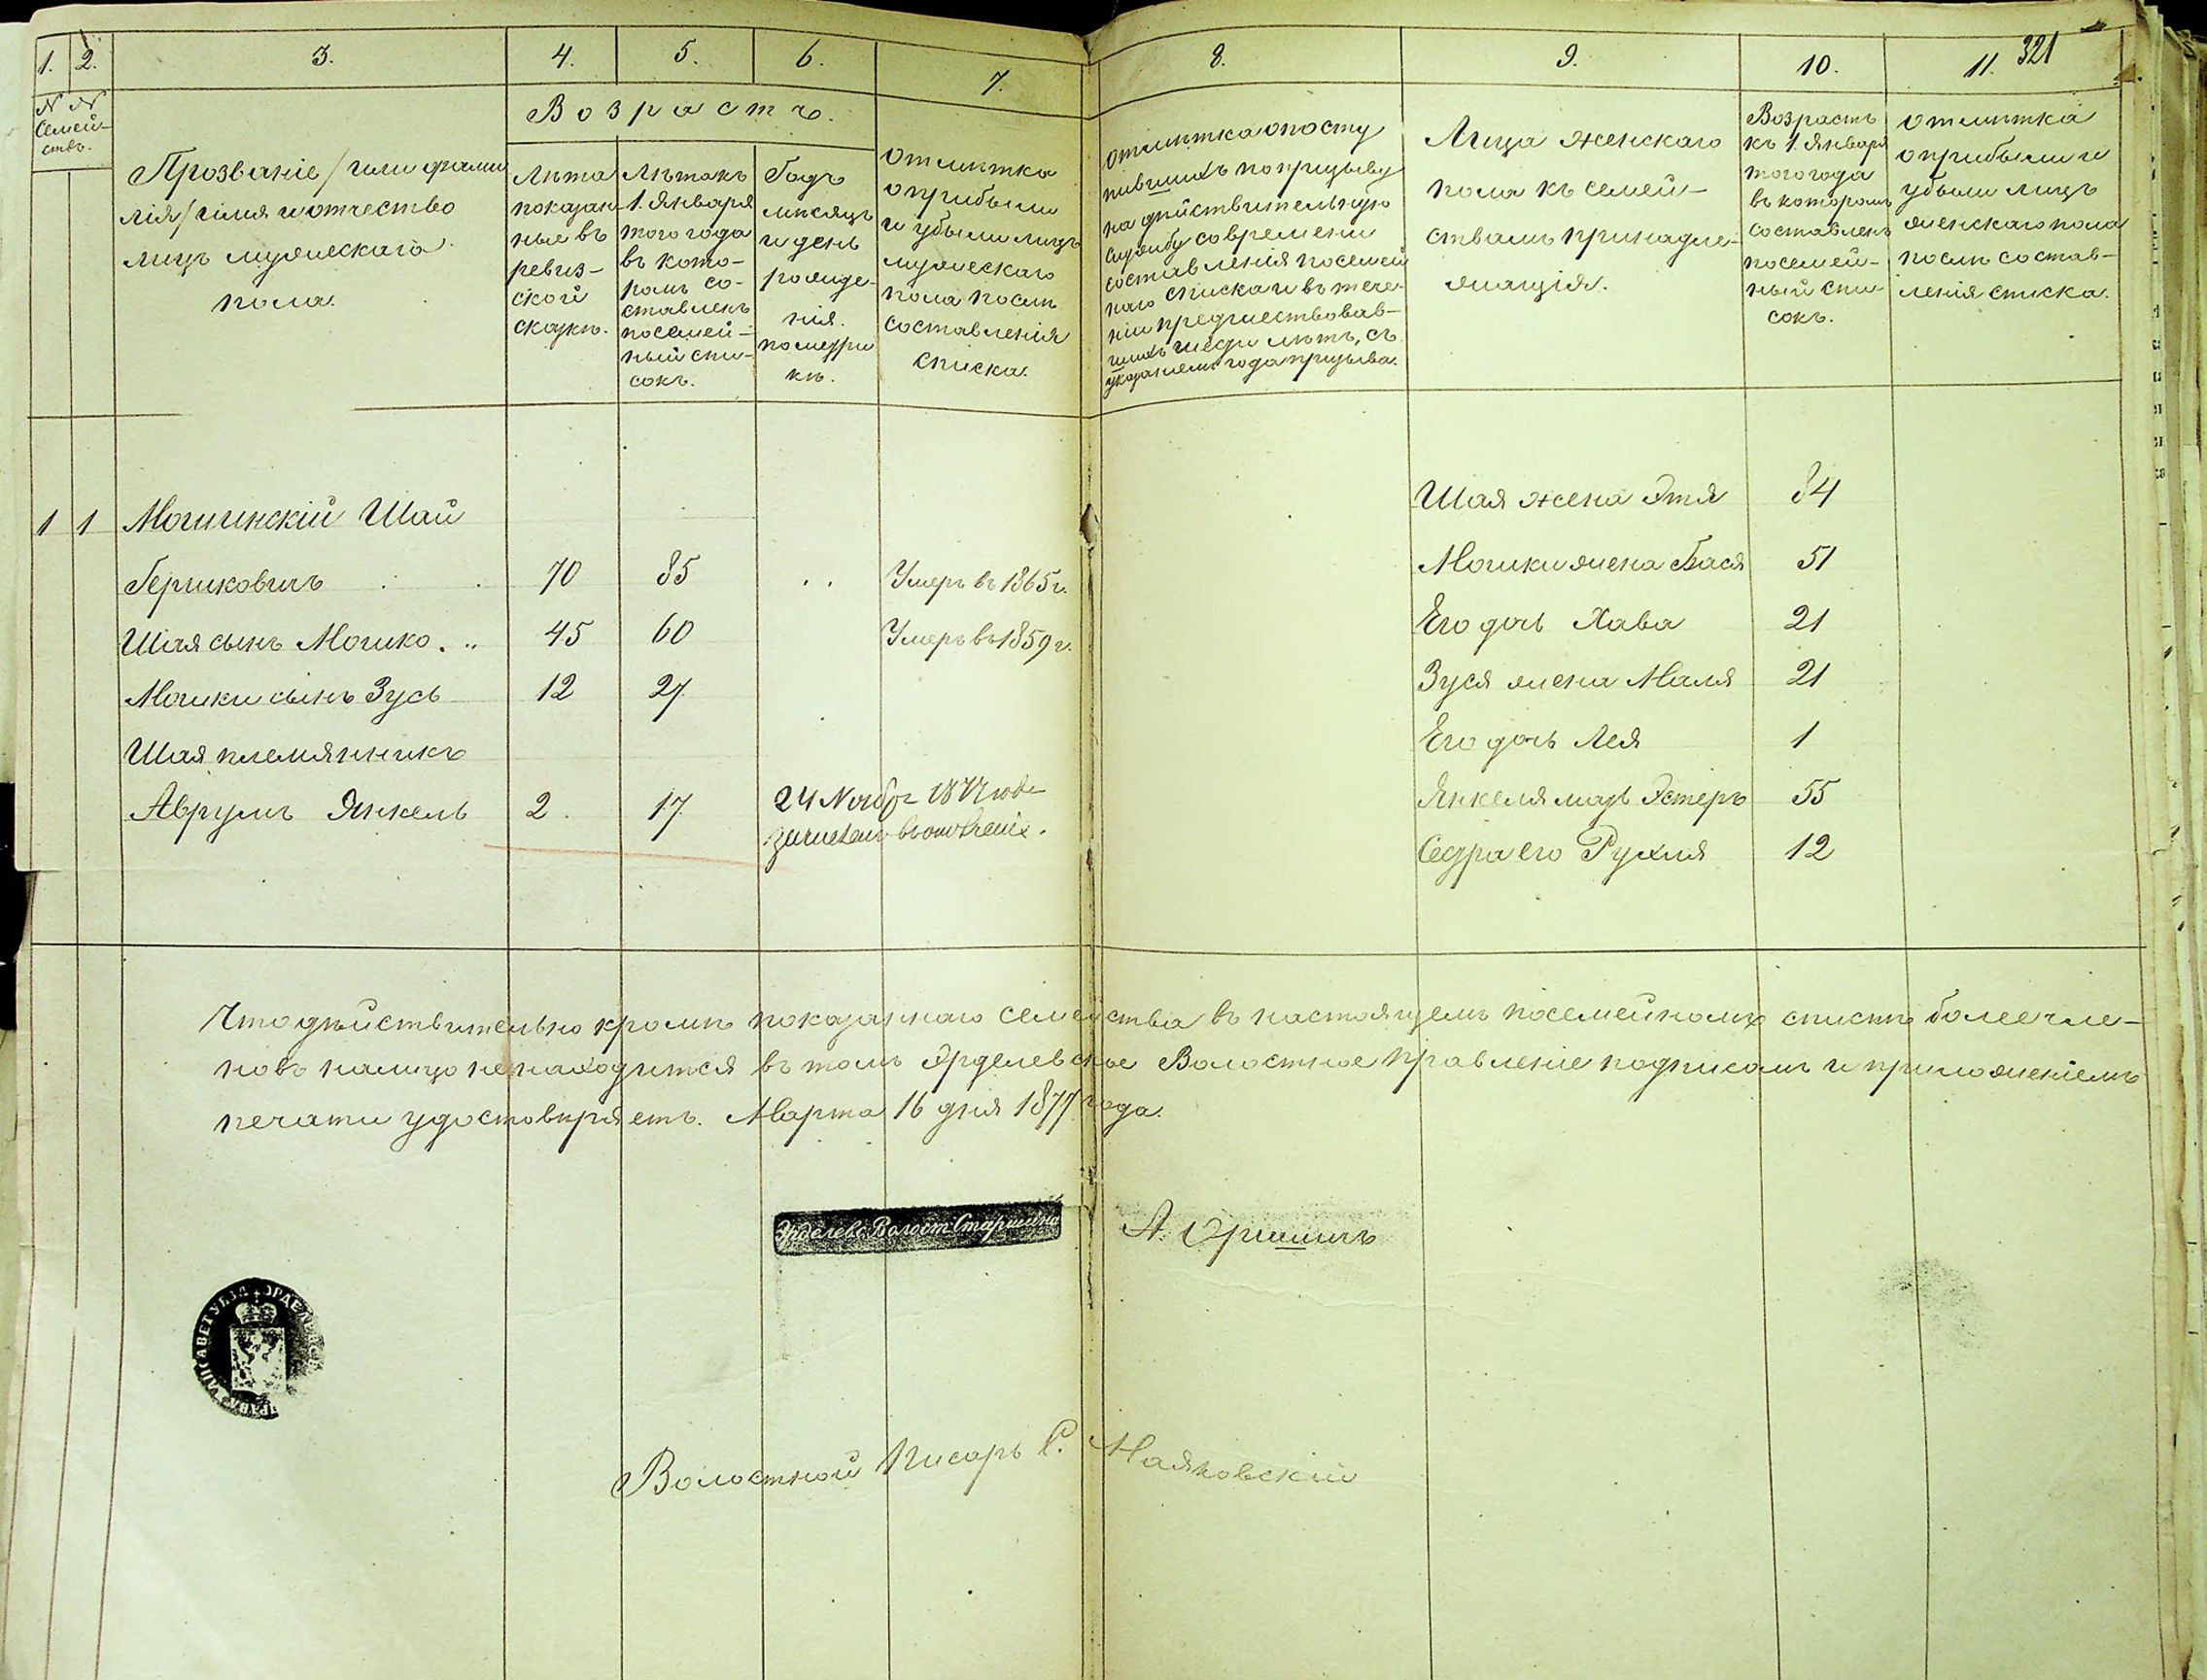 1.
2.
3.
4.
5.
6.
7.
8.
9.
10.
11.
321
№ №
Семей-
ствъ.
Прозваніе /или фами
лія/ имя и отчество
лицъ мужескаго
пола.
Возрастъ.
Лѣта
показан-
ные въ
ревиз-
ской
сказкѣ.
Лѣта къ
1. Января
того года
въ кото-
ромъ со-
ставленъ
посемей-
ный спи-
сокъ.
Годъ
мѣсяцъ
и день
рожде-
нія.
по метри
кѣ.
Отмѣтка
о прибыли
и убыли лицъ
мужескаго
пола послѣ
составленія
списка.
Отмѣтка о посту
пившихъ по призыву
на дѣйствительную
службу со времени
составленія посемей
наго списка и въ тече-
ніи предшествовав-
шихъ шести лѣтъ, съ
указаніемъ года призыва.
Лица женскаго
пола къ семей-
ствамъ принадле-
жащія.
Возрастъ
къ 1. Января
того года
въ которомъ
составленъ
посемей-
ный спи-
сокъ.
Отмѣтка
о прибыли и
убыли лицъ
женскаго пола
послѣ состав-
ленія списка.
1 1 Мошинскій Шай
Гершковичъ 70 85 Умеръ въ 1865 г.
Шая сынъ Мошко 45 60 Умеръ въ 1859 г.
Мошки сынъ Зусь 12 27
Шая племянникъ
Аврумъ Янкель 2. 17 24 Ноября 1877 года
Шая жена Этя 84
Мошки жена Бася 51
Его дочь Хава 21
Зуся жена Маля 21
Его дочь Лея 1
Янкеля мать Эстеръ 55
Сестра его Рухля 12
Что дѣйствительно кромѣ показаннаго семейства въ настоящемъ посемейномъ спискѣ более чле-
новъ налицо не находится въ томъ Эрделевское Волостное Правленіе подписомъ и приложеніемъ
печати удостовѣряетъ. Марта 16 дня 1877 года.
Эрделевс. Волост. Старшина
Волостной Писарь С. Маяковскій